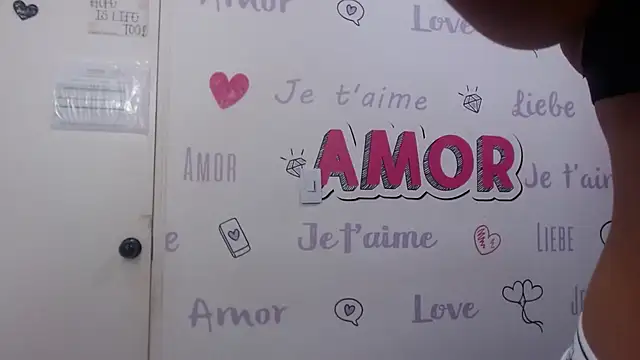 Amor
Love
IS LIFE
TOO!
Je t'aime
Liebe
AMOR
AMOR
Je t'air
e
Je t'aime
LIEBE
Amor
Love
Je